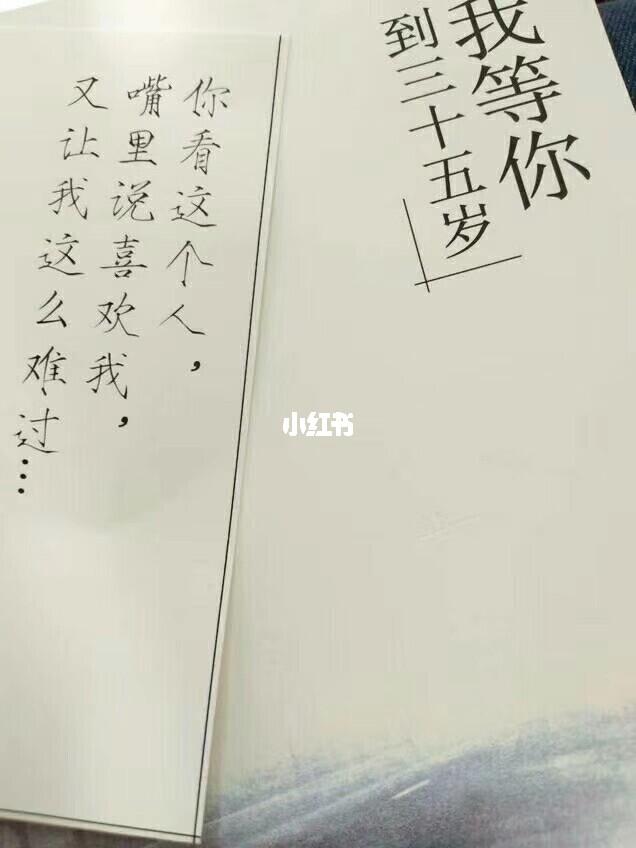 我等你
到三十五岁
你看这个人，
嘴里说喜欢我，
又让我这么难过…
小红书